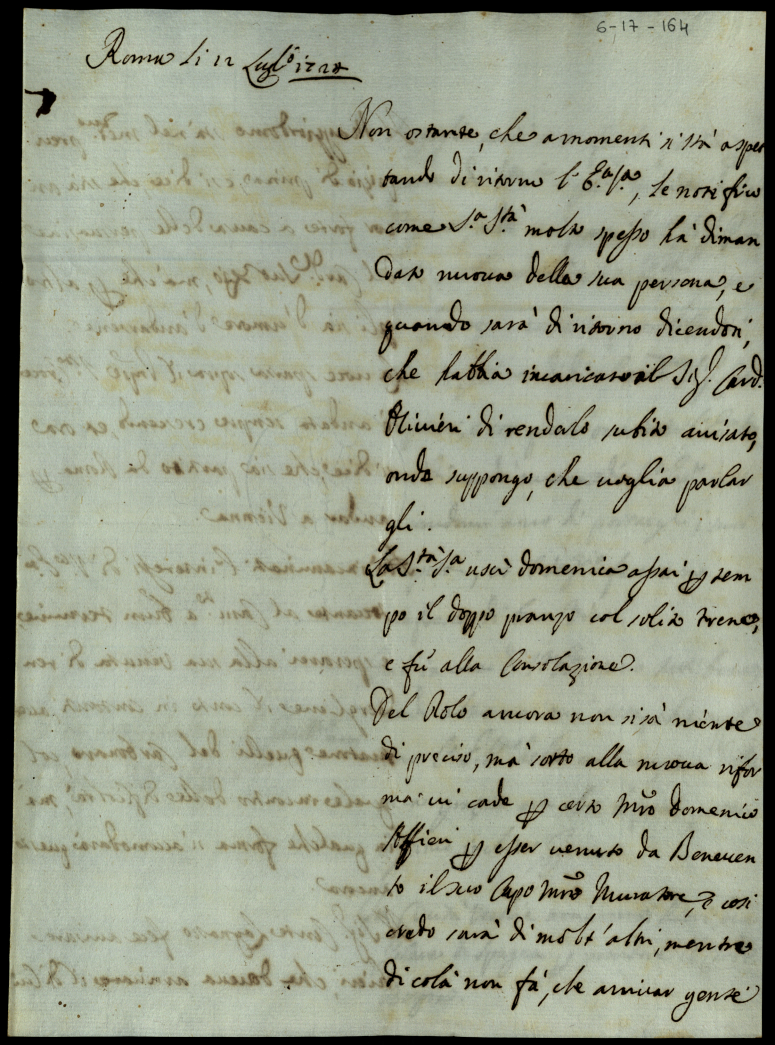 6-17-164
Roma li 12 Lugl.o 1724
Non ostante, che a momenti si stà aspet
tando di ritorno l'E.a S.a, le notifico
come S.a S.tà molto spesso hà diman
dato nuova della sua persona, e
quando sarà di ritorno dicendosi,
che habbia incaricato il Sig.r Card.
Olivieri di renderlo subito avisato,
onde suppongo, che voglia parlar
gli.
La S.tà S.a uscì domenica assai p tem
po il doppo pranzo col solito treno,
e fù alla Consolazione.
Del Rolo ancora non si sà niente
di preciso, mà sotto alla nuova rifor
ma vi cade p certo Mro Domenico
Affieri p esser venuto da Beneven
to il suo Capo Mro Muratore, e così
credo sarà di molt'altri, mentre
di colà non fà, che arrivar gente